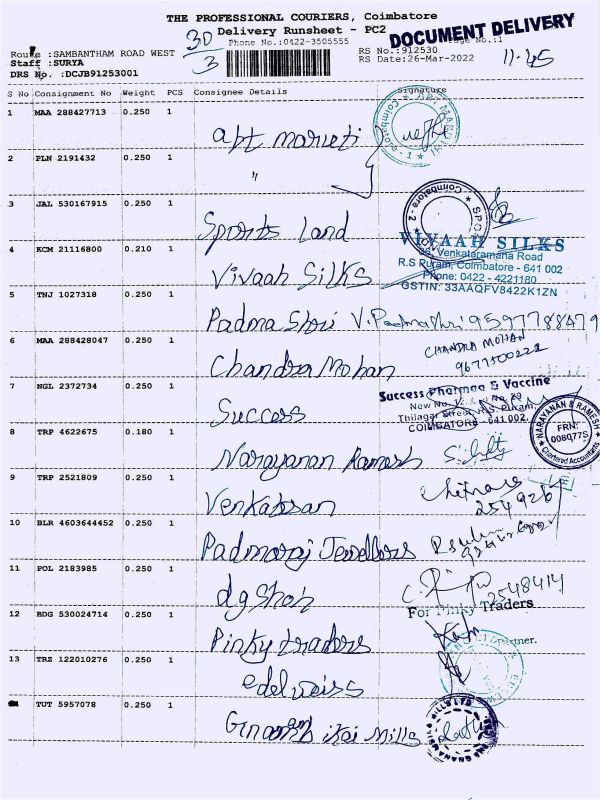 THE PROFESSIONAL COURIERS, Coimbatore
Delivery Runsheet - PC2
DOCUMENT DELIVERY
30/3
Phone No.:0422-3505555
Page No.:1
Route :SAMBANTHAM ROAD WEST
RS No.:912530
Staff :SURYA
RS Date:26-Mar-2022
11:45
DRS No. :DCJB91253001
S No Consignment No Weight PCS Consignee Details Signature
1 MAA 288427713 0.250 1
Apt maruti
2 PLN 2191432 0.250 1
"
3 JAL 530167915 0.250 1
Coimbatore - 2
Sports Land
4 KCM 21116800 0.210 1
VIVAAH SILKS
Venkataramana Road
R.S Puram, Coimbatore - 641 002
Phone: 0422 - 4221180
GSTIN: 33AAQFV8422K1ZN
Vivaah Silks
5 TNJ 1027318 0.250 1
Padma Shri V. Padmashri 9597788479
6 MAA 288428047 0.250 1
CHANDRA MOHAN
9677500222
Chandra Mohan
7 NGL 2372734 0.250 1
Success Pharma & Vaccine
Thilagar Street, R.S. Puram,
COIMBATORE - 641 002.
Success
8 TRP 4622675 0.180 1
NARAYANAN & RAMESH
FRN:
008077S
Chartered Accountants
Narayanan Ramesh
9 TRP 2521809 0.250 1
254926
Venkatesan
10 BLR 4603644452 0.250 1
Padmaraj Jewellers
11 POL 2183985 0.250 1
2548414
dg Shah
12 BDG 530024714 0.250 1
For Pinky Traders
Partner.
Pinky traders
13 TRZ 122010276 0.250 1
edelweiss
TUT 5957078 0.250 1
Mills